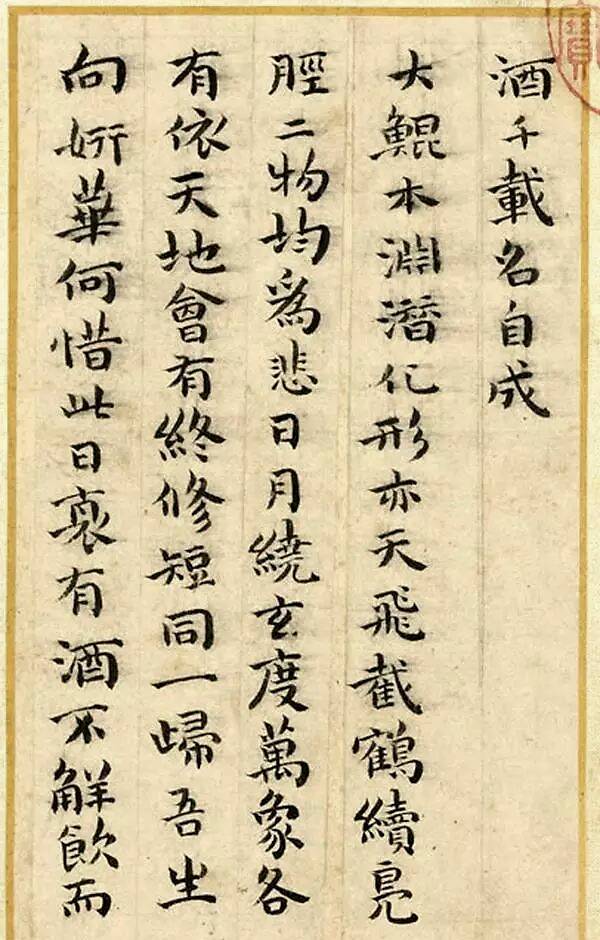 酒千載名自成
大鯤本淵潛化形亦天飛截鶴續鳧
脛二物均爲悲日月繞玄度萬象各
有依天地會有終修短同一歸吾生
向妍華何惜此日衰有酒不解飲而